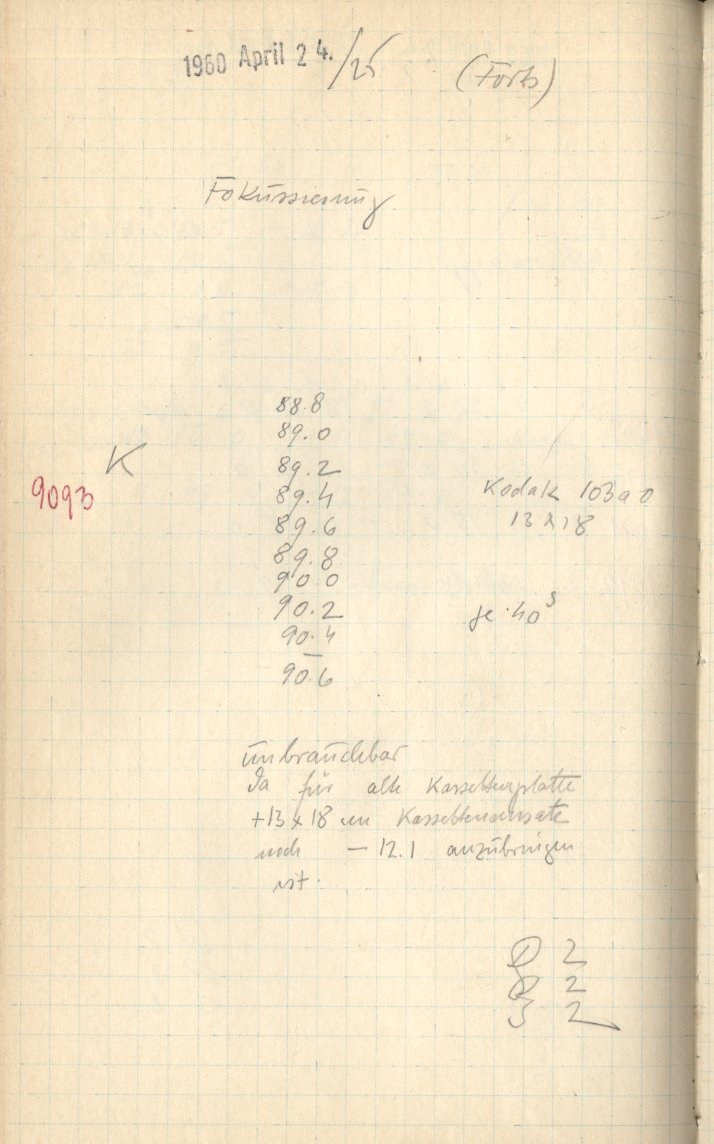 1960 April 24./25 (Forts)
Fokussierung
88.8
89.0
K 89.2
9093 89.4 Kodak 103a0
89.6 13x18
89.8
90.0
90.2 je 40s
90.4
90.6
unbrauchbar
da für alte Kassettenplatte
+13x18 er Kasseteneinsatz
noch – 12.1 anzubringen
ist.
D 2
2
3 2